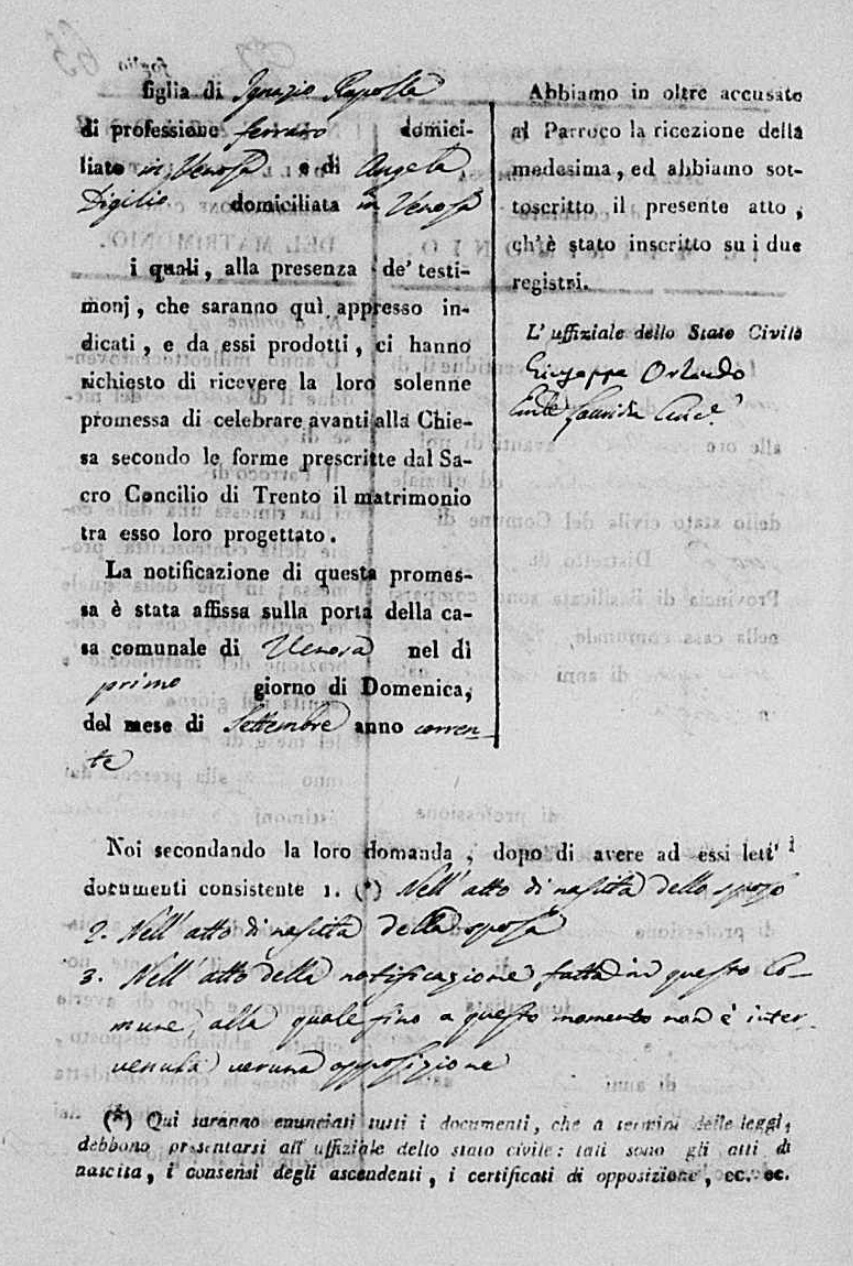 figlia di Ignazio Rapolla
di professione ferraro domici-
liato in Venosa e di Angela
Digilio domiciliata in Venosa
i quali, alla presenza de' testi-
monj, che saranno quì appresso in-
dicati, e da essi prodotti, ci hanno
richiesto di ricevere la loro solenne
promessa di celebrare avanti alla Chie-
sa secondo le forme prescritte dal Sa-
cro Concilio di Trento il matrimonio
tra esso loro progettato.
La notificazione di questa promes-
sa è stata affissa sulla porta della ca-
sa comunale di Venosa nel dì
primo giorno di Domenica,
del mese di Settembre anno corren-
te
Abbiamo in oltre accusato
al Parroco la ricezione della
medesima, ed abbiamo sot-
toscritto il presente atto,
ch'è stato inscritto su i due
registri.
L'uffiziale dello Stato Civile
Giuseppe Orlando
Noi secondando la loro domanda, dopo di avere ad essi letti i
documenti consistente 1. (*) Nell'atto di nascita dello sposo
2. Nell'atto di nascita della sposa
3. Nell'atto della notificazione fatta in questo Co-
mune, alla quale fino a questo momento non è inter-
venuta veruna opposizione
(*) Qui saranno enunciati tutti i documenti, che a termini delle leggi,
debbono presentarsi all'uffiziale dello stato civile: tali sono gli atti di
nascita, i consensi degli ascendenti, i certificati di opposizione, ec. ec.